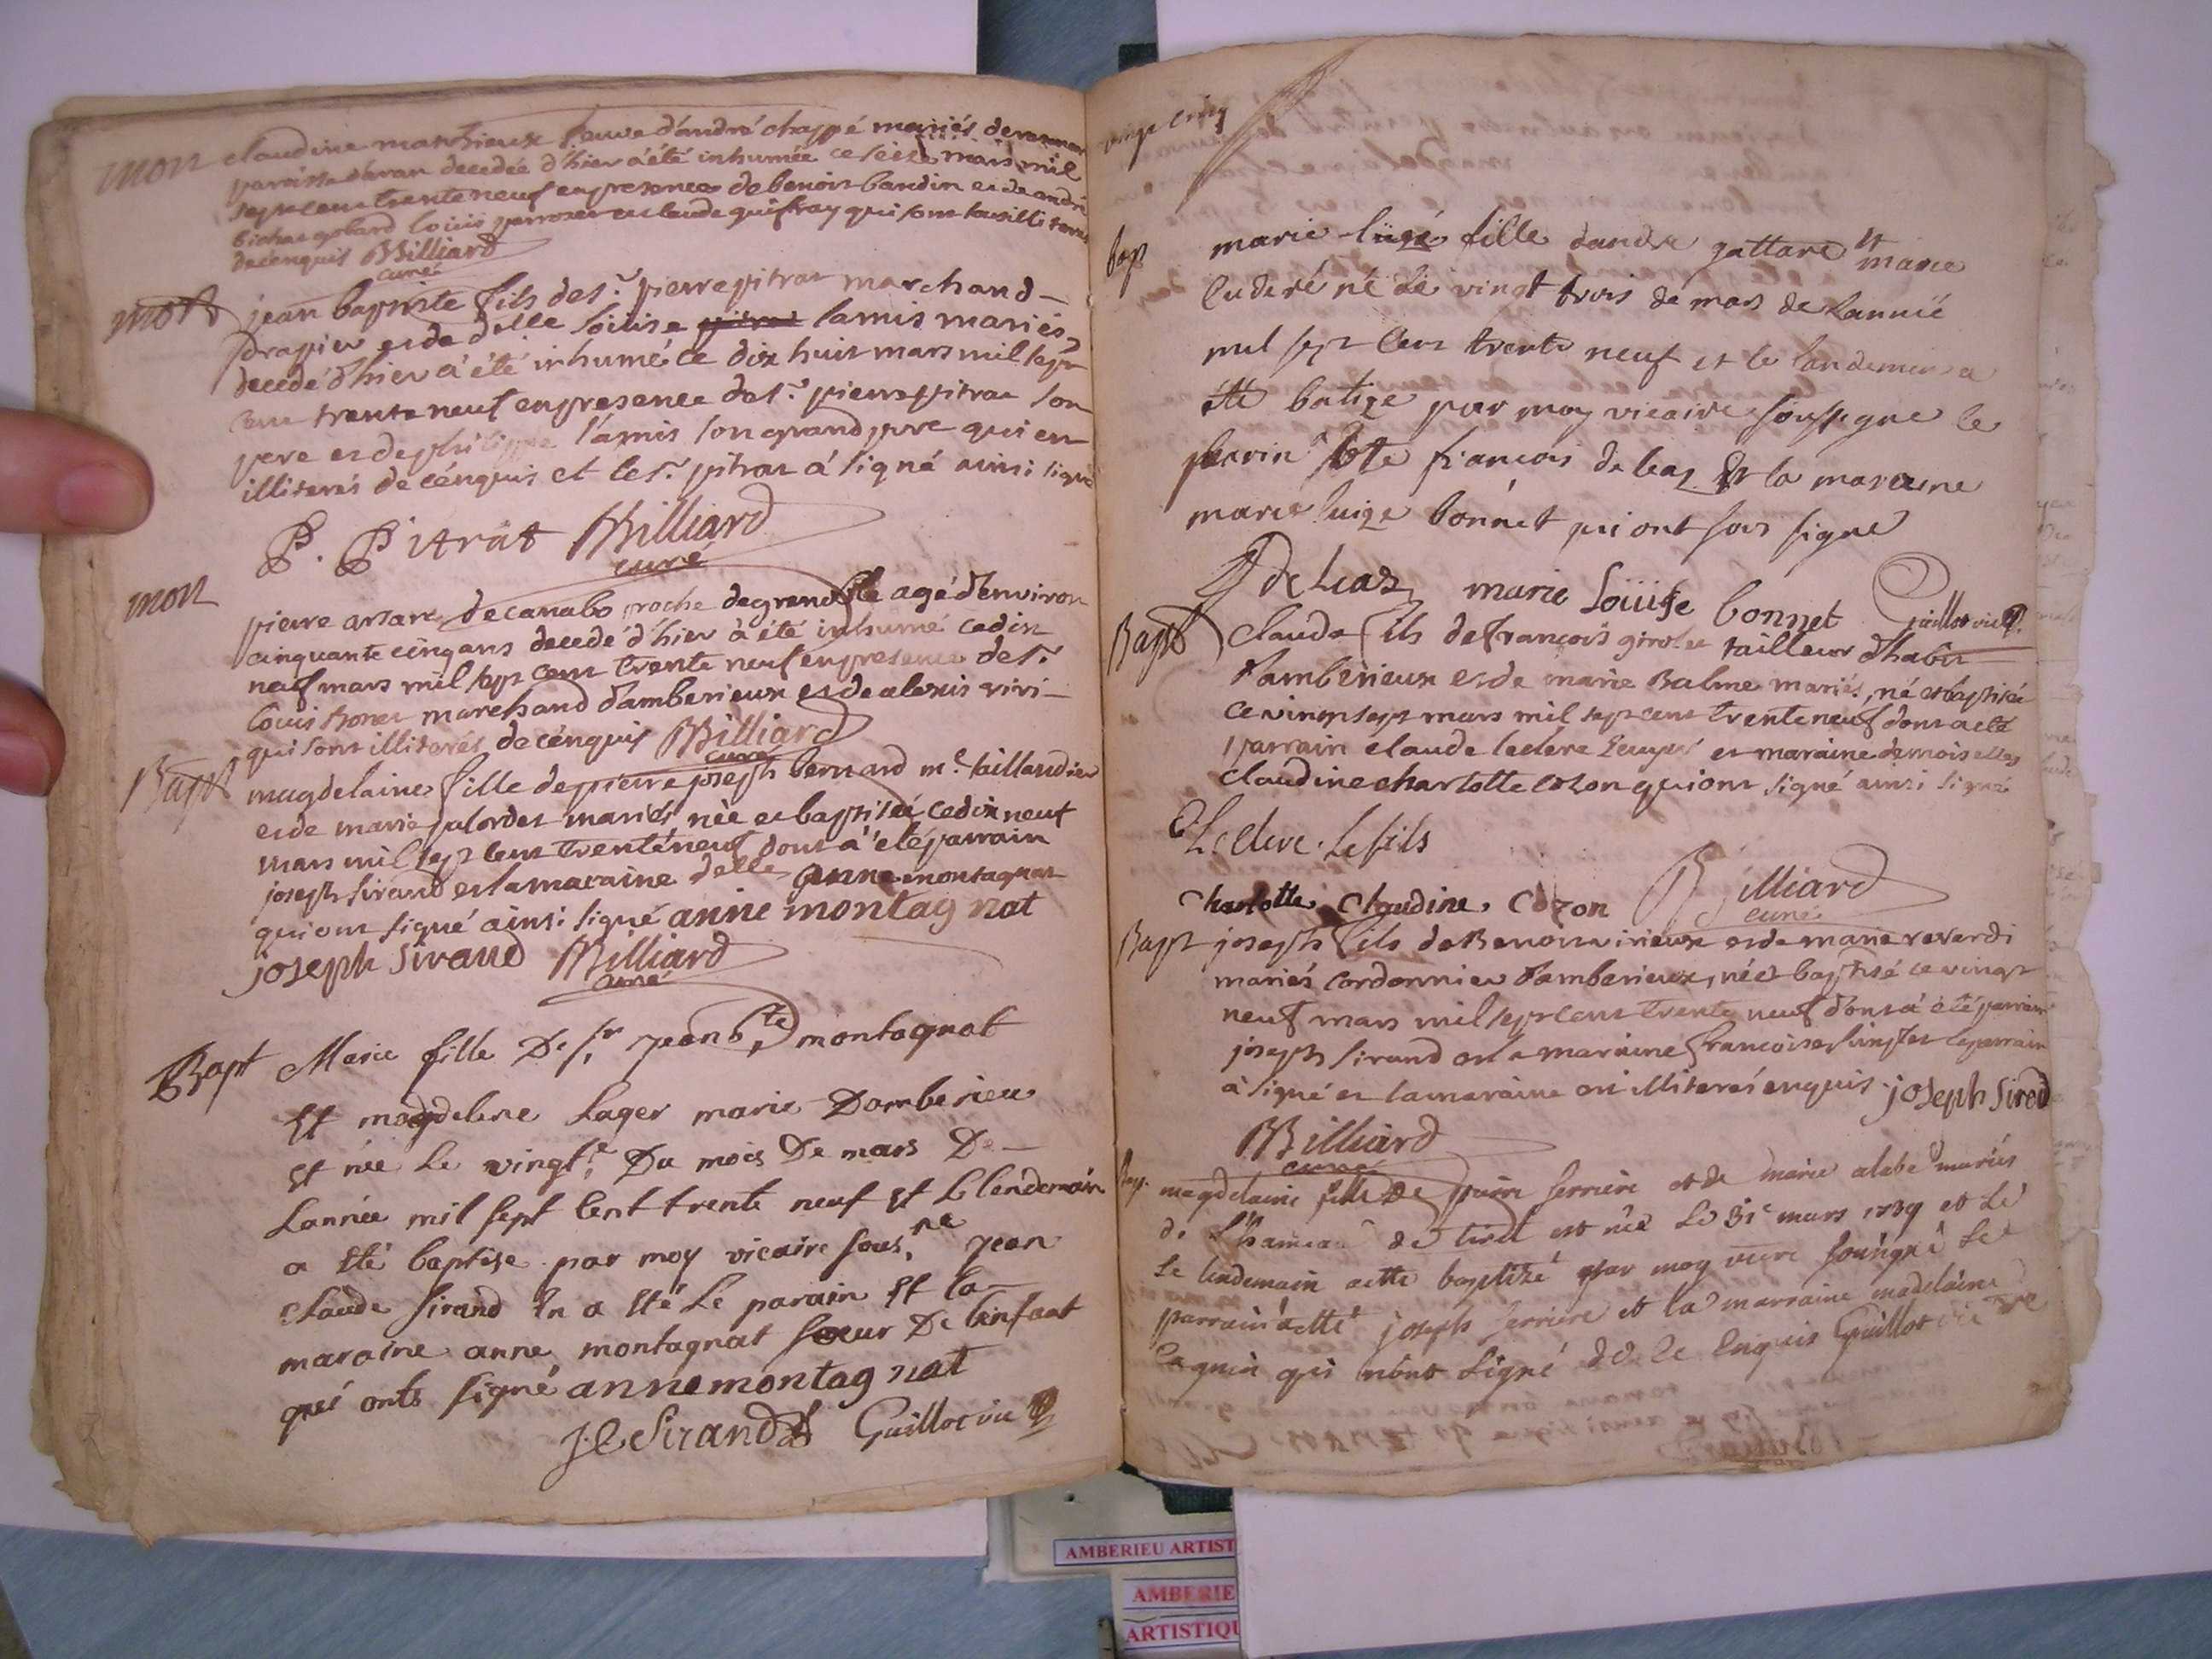 mort claudine matthieux veuve d'andré chappé mariés de
paroisse d'aran decedée d'hier a été inhumée ce seize mars mil
sept cent trente neuf en presence de benoit baudin et de andré
louis perrozet claude guifray qui sont tous illiterés
de cenquis BBilliard
curé
mort jean baptiste fils de sr. pierre pitrat marchand
drapier et de delle loüise lamis mariés
decedé d'hier a été inhumé ce dix huit mars mil sept
cent trente neuf en presence de sr. pierre pitrat son
pere et de philippe lamis son grand pere qui en
illiterés de cénquis et le sr. pitrat à signé ainsi signé
P. Pitrat BBilliard
curé
mort
pierre de canabo proche de grenoble agé d'environ
cinquante cinq ans decedé d'hier à été inhumé ce dix
neuf mars mil sept cent trente neuf en presence de sr.
louis bonet marchand d'amberieux et de alexis vivi-
qui sont illiterés de cénquis BBilliard
curé
Bapt magdelaine fille de pierre joseph bernard me. taillandier
et de marie palordet mariés née et baptisée ce dix neuf
mars mil sept cent trente neuf dont a été parrain
joseph sirand et la maraine delle anne montagnat
qui ont signé ainsi signé anne montagnat
joseph Sirand BBilliard
curé
Bapt Marie fille De sr. jean bte. montagnat
Et magdelene Lager marie D'amberieu
Et née Le vingt.e Du mois De mars De
Lannée mil sept cent trente neuf Et Le lendemain
a Eté baptise par moy vicaire sous.né jean
claude Sirand En a Eté Le parain Et la
maraine anne montagnat soeur De Lenfant
qui onts signé anne montagnat
J.C Sirand Guillot vic
vingt cinq
bap marie luise fille dandre gattare et marie
luderé né lé vingt trois dé mars de lannué
mil sept cent trente neuf et le landemin a
été batize par moy vicaire soussigne le
parin francois de leaz Et la maraine
marie luize bonnet qui ont sous signe
De Leaz marie Loüise bonnet Guillot vic
Bapt Claude fils de françois girolet tailleur d'habit
d'amberieux et de marie Balme mariés, né et baptisée
ce vingt sept mars mil sept cent trente neuf dont a été
parrain claude leclerc et maraine demoiselle
claudine charlotte cozon qui ont signé ainsi signé
Leclerc. Le fils
charlotte Claudine, Cozon BBilliard
curé
Bapt joseph fils de Benoit virieux et de marie reverdi
mariés cordonnier d'amberieux, né et baptisé ce vingt
neuf mars mil sept cent trente neuf dont a été parrain
joseph sirand et la maraine francoise le parrain
à signé et la maraine illiterés enquis. joseph Sirand
BBilliard
curé
Bap. magdelaine fille De pierre ferriere et de marie alabe mariés
de L'hameau de tiret est née Le 31e mars 1739 et Le
Le lendemain a etté baptizé par moy vicaire sousigné Le
parrain a etté joseph ferriere et la marraine madelaine
qui n'ont signé de ce Enquis Guillot vic
AMBERIEU ARTIST
AMBERIE
ARTISTIQU